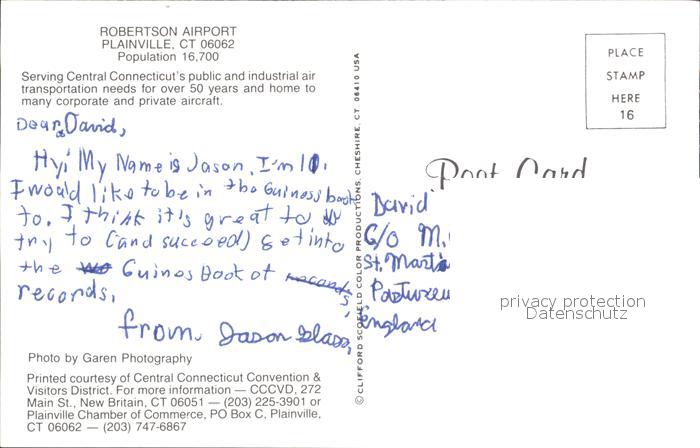 ROBERTSON AIRPORT
PLAINVILLE, CT 06062
Population 16,700
Serving Central Connecticut's public and industrial air
transportation needs for over 50 years and home to
many corporate and private aircraft.
Dear David,
Hy! My Name is Jason. I'm 10.
I would like to be in the Guiness book
to. I think it's great to
try to (and succeed) get into
the Guines Book of
records.
from Jason
Photo by Garen Photography
Printed courtesy of Central Connecticut Convention &
Visitors District. For more information — CCCVD, 272
Main St., New Britain, CT 06051 — (203) 225-3901 or
Plainville Chamber of Commerce, PO Box C, Plainville,
CT 06062 — (203) 747-6867
© CLIFFORD SCOFIELD COLOR PRODUCTIONS, CHESHIRE, CT 06410 USA
PLACE
STAMP
HERE
16
Post Card
David
C/O M.
St. Martin
England
privacy protection
Datenschutz